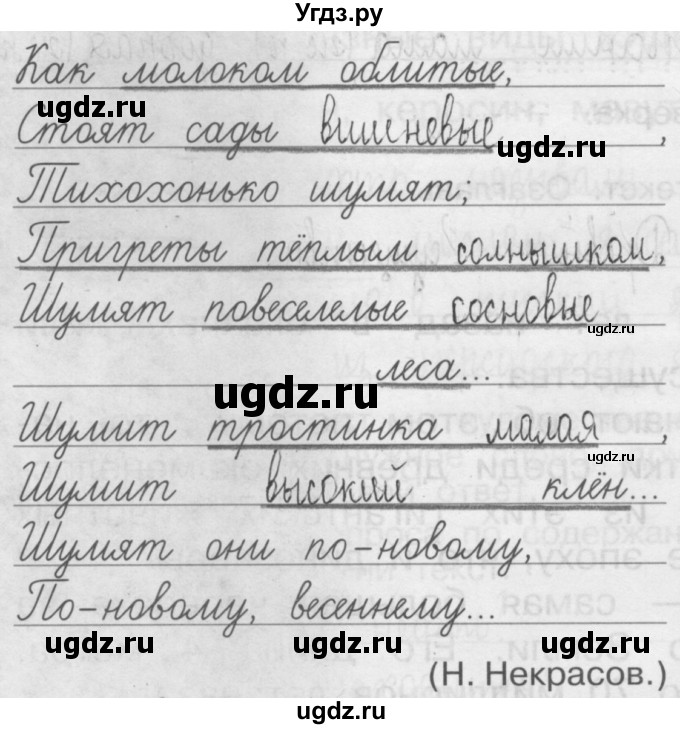 Угдз.ру
Как молоком облитые,
ugdz.ru
Стоят сады вишневые,
ugdz.ru
Тихохонько шумят,
Пригреты тёплым солнышком,
Шумят повеселелые сосновые
ugdz.ru
леса...
ugdz.ru
Шумит тростинка малая,
ugdz.ru
Шумит высокий клён...
Шумят они по-новому,
По-новому, весеннему...
ugdz.ru ugdz.ru ugdz.ru
(Н. Некрасов.)
ugdz.ru